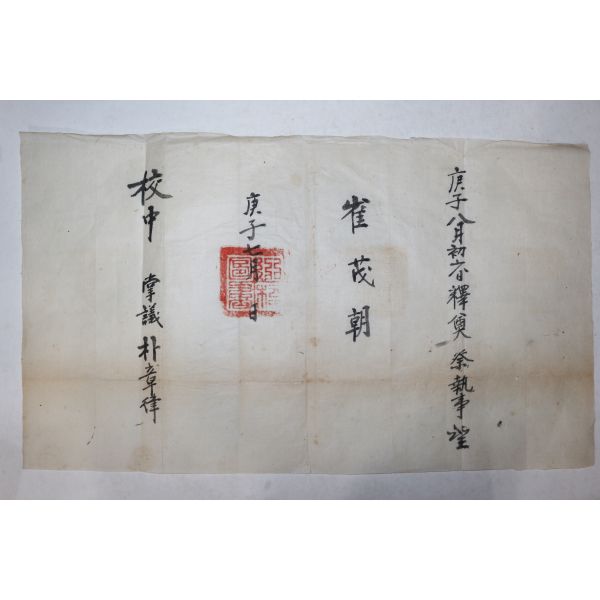 庚子八月初六日釋奠 祭執事望
崔茂朝
庚子七月 日
校中 掌議 朴章律
圖書